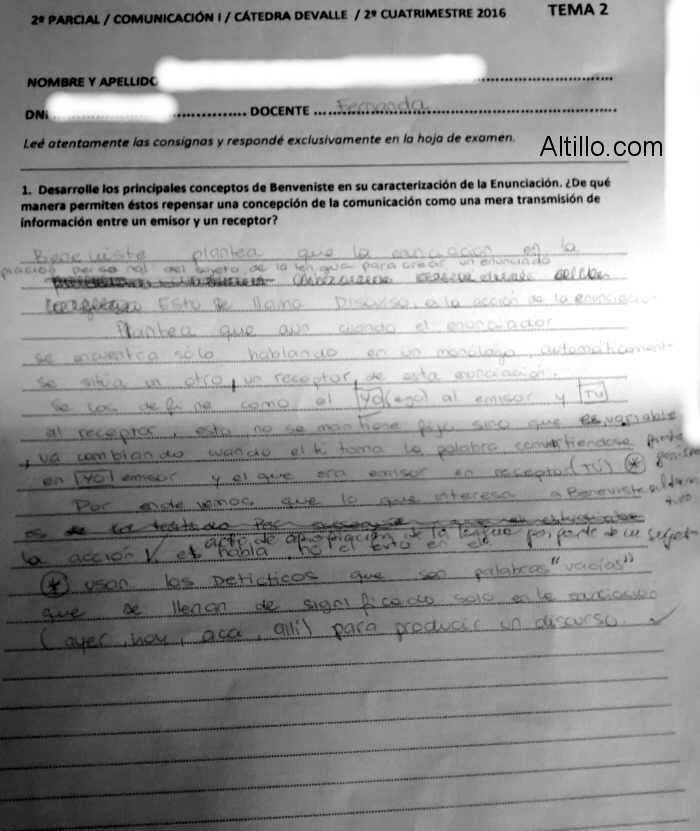 2º PARCIAL / COMUNICACIÓN I / CÁTEDRA DEVALLE / 2º CUATRIMESTRE 2016 TEMA 2
NOMBRE Y APELLIDO
DNI DOCENTE Fernanda
Leé atentamente las consignas y respondé exclusivamente en la hoja de examen.
Altillo.com
1. Desarrolle los principales conceptos de Benveniste en su caracterización de la Enunciación. ¿De qué
manera permiten éstos repensar una concepción de la comunicación como una mera transmisión de
información entre un emisor y un receptor?
plantea que la en la
personal del sujeto, de la lengua para crear un enunciado
Esto se llama Discurso, a la acción de la enunciación
Plantea que aun cuando el enunciador
se encuentra sólo hablando en un monólogo, automáticamente
se sitúa un otro, un receptor, de esta enunciación.
Se los define como el YO (ego) al emisor y TU
al receptor, esto no se mantiene fijo sino que es variable
, va cambiando cuando el toma la palabra convirtiendose
en YO emisor y el que era emisor en receptor (TÚ) *
Por ende vemos que lo que interesa a
acto de apropiación de la lengua por parte de un sujeto
la acción el habla no el
* usan los Deticticos que son palabras "vacías"
que se llenan de significado solo en la
(ayer, hoy, aca, alli) para producir un discurso.